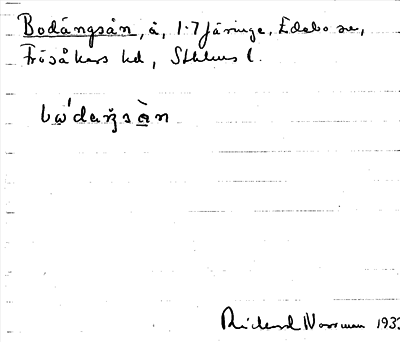 Bodängsån, å, 1-7 Järinge, Edebo sn,
Frösåkers hd, Sthlms l.
bω'daŋsàn
Rickard Norrman 1933